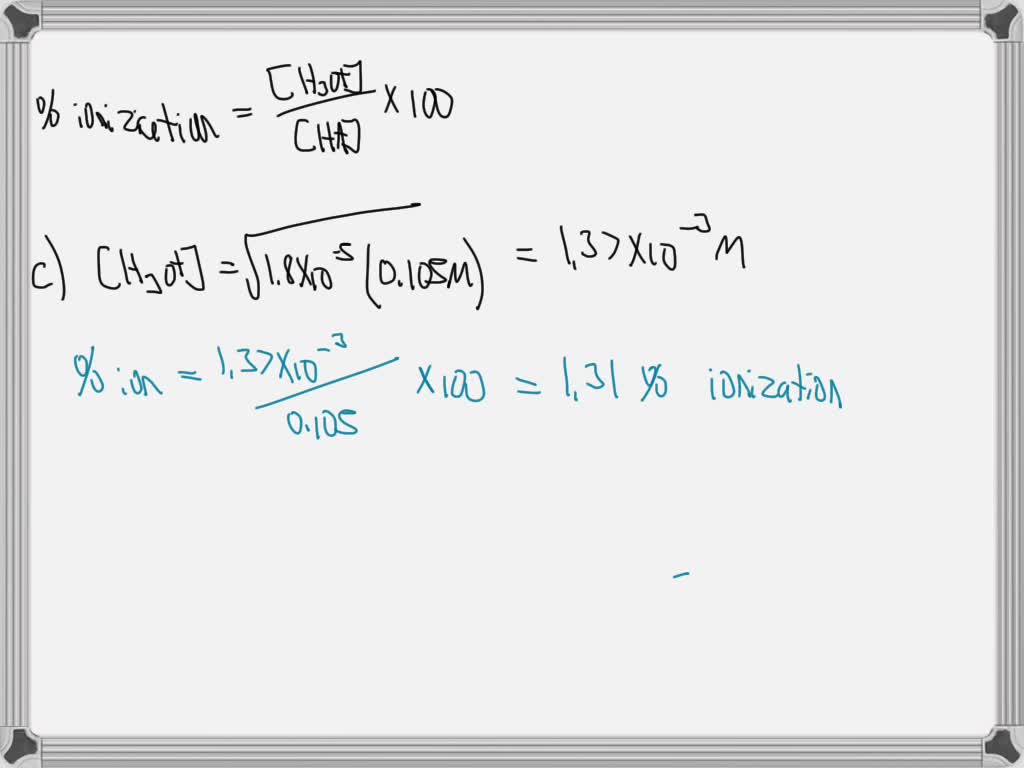 % ionization = [H3O+]/[HA] × 100
c) [H3O+] = √1.8×10^-5 (0.105M) = 1.37×10^-3 M
% ion = 1.37×10^-3/0.105 ×100 = 1.31 % ionization